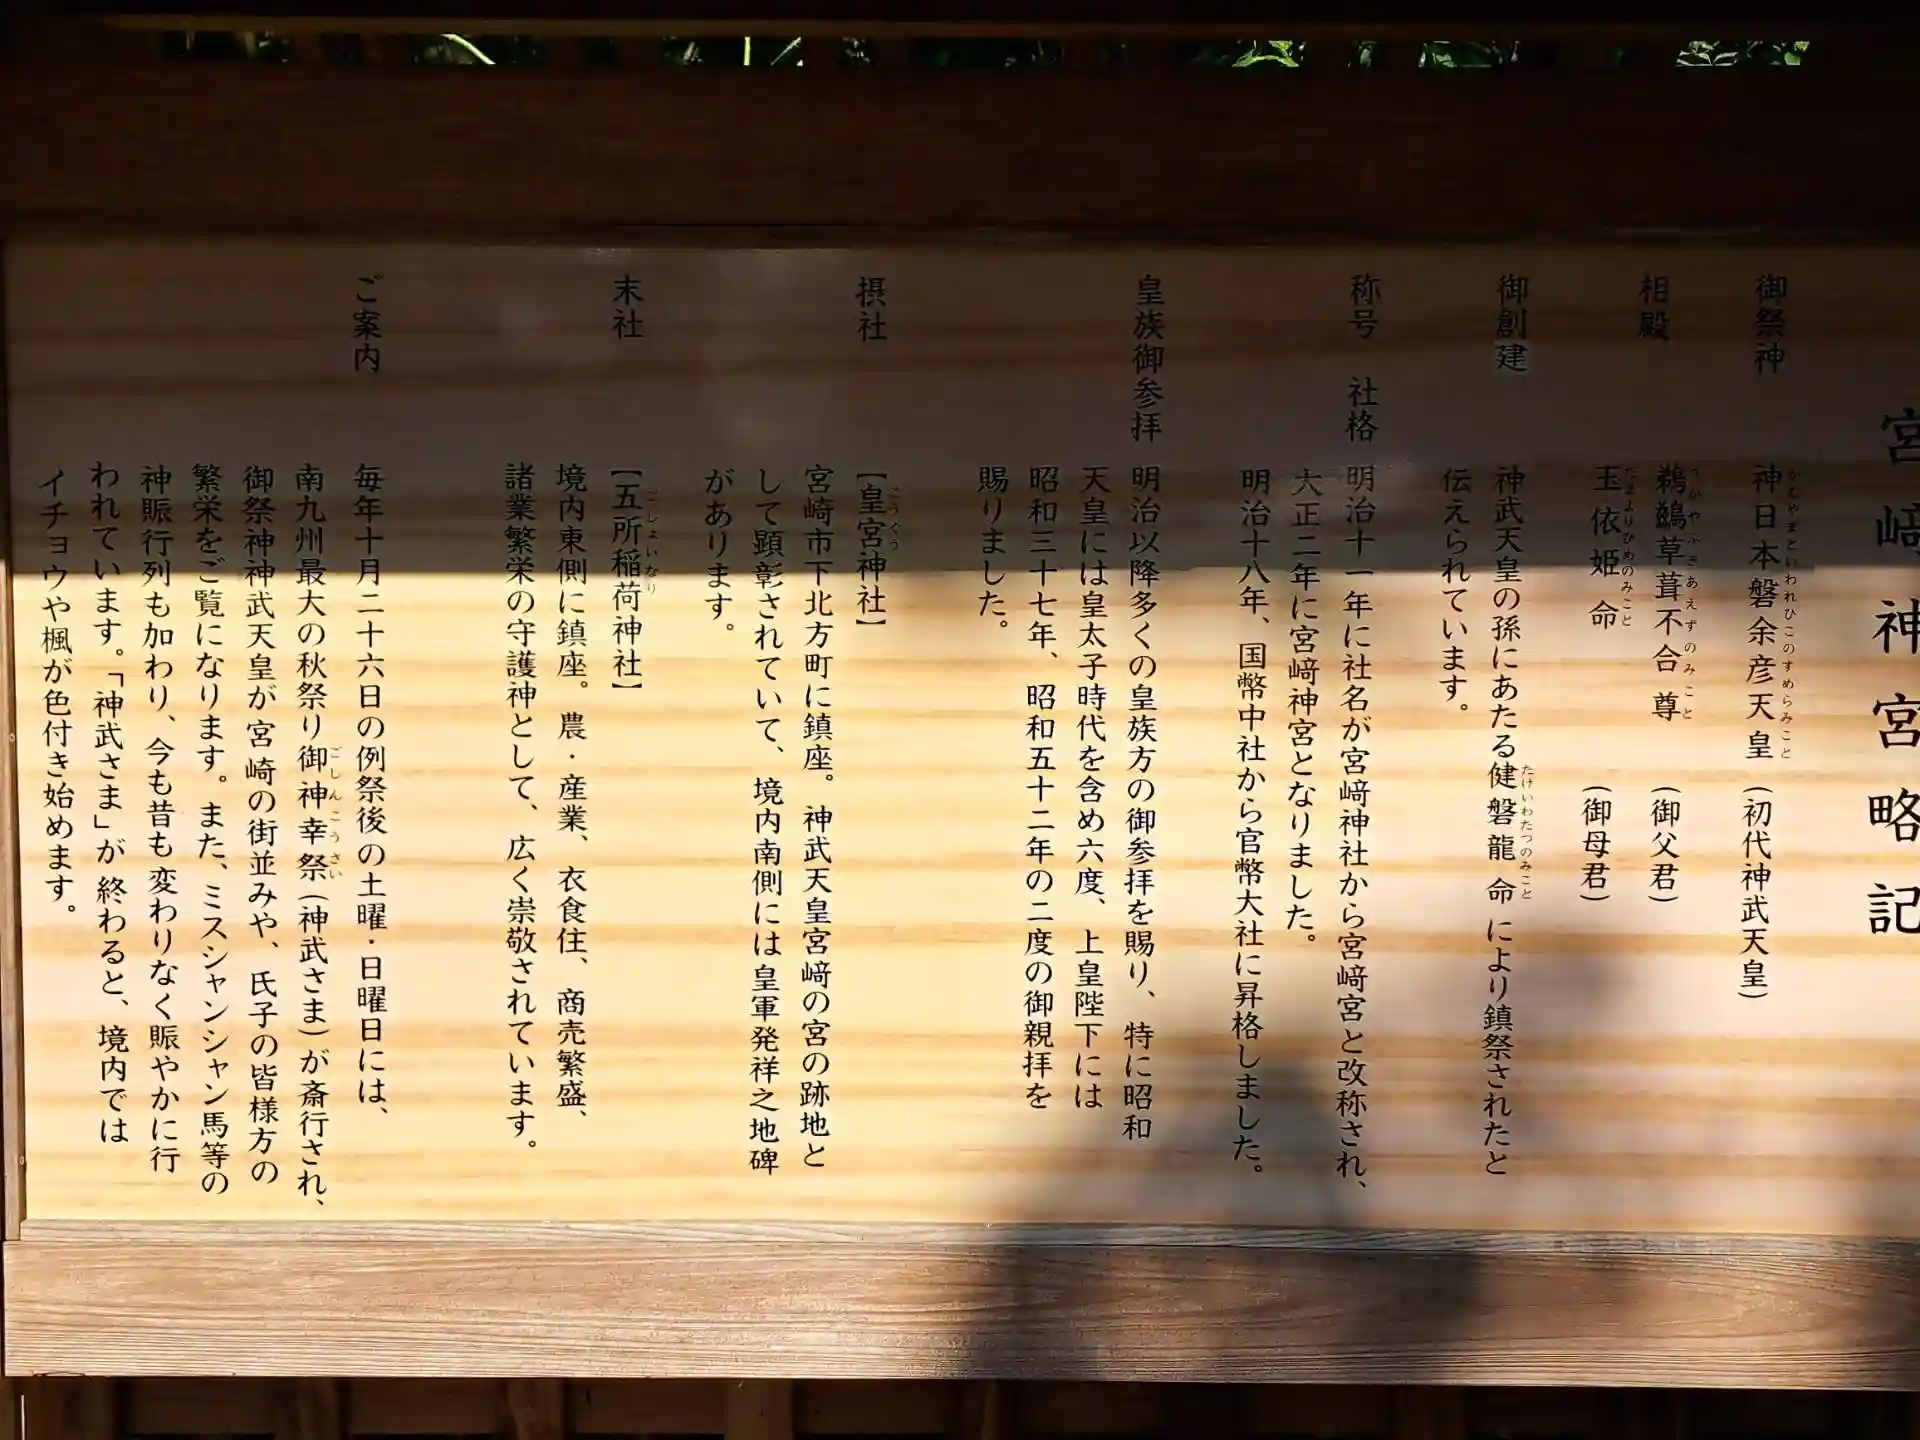 宮﨑神宮略記
御祭神 神日本磐余彦天皇（初代神武天皇）
かむやまといわれひこのすめらみこと
相殿 鵜鶿草葺不合尊（御父君）
うがやふきあえずのみこと
玉依姫命（御母君）
たまよりひめのみこと
御創建 神武天皇の孫にあたる健磐龍命により鎮祭されたと
たけいわたつのみこと
伝えられています。
称号 社格 明治十一年に社名が宮﨑神社から宮﨑宮と改称され、
大正二年に宮﨑神宮となりました。
明治十八年、国幣中社から官幣大社に昇格しました。
皇族御参拝 明治以降多くの皇族方の御参拝を賜り、特に昭和
天皇には皇太子時代を含め六度、上皇陛下には
昭和三十七年、昭和五十二年の二度の御親拝を
賜りました。
摂社 【皇宮神社】
こうぐう
宮崎市下北方町に鎮座。神武天皇宮﨑の宮の跡地と
して顕彰されていて、境内南側には皇軍発祥之地碑
があります。
末社 【五所稲荷神社】
ごしょいなり
境内東側に鎮座。農・産業、衣食住、商売繁盛、
諸業繁栄の守護神として、広く崇敬されています。
ご案内 毎年十月二十六日の例祭後の土曜・日曜日には、
南九州最大の秋祭り御神幸祭（神武さま）が斎行され、
ごしんこうさい
御祭神神武天皇が宮崎の街並みや、氏子の皆様方の
繁栄をご覧になります。また、ミスシャンシャン馬等の
神賑行列も加わり、今も昔も変わりなく賑やかに行
われています。「神武さま」が終わると、境内では
イチョウや楓が色付き始めます。